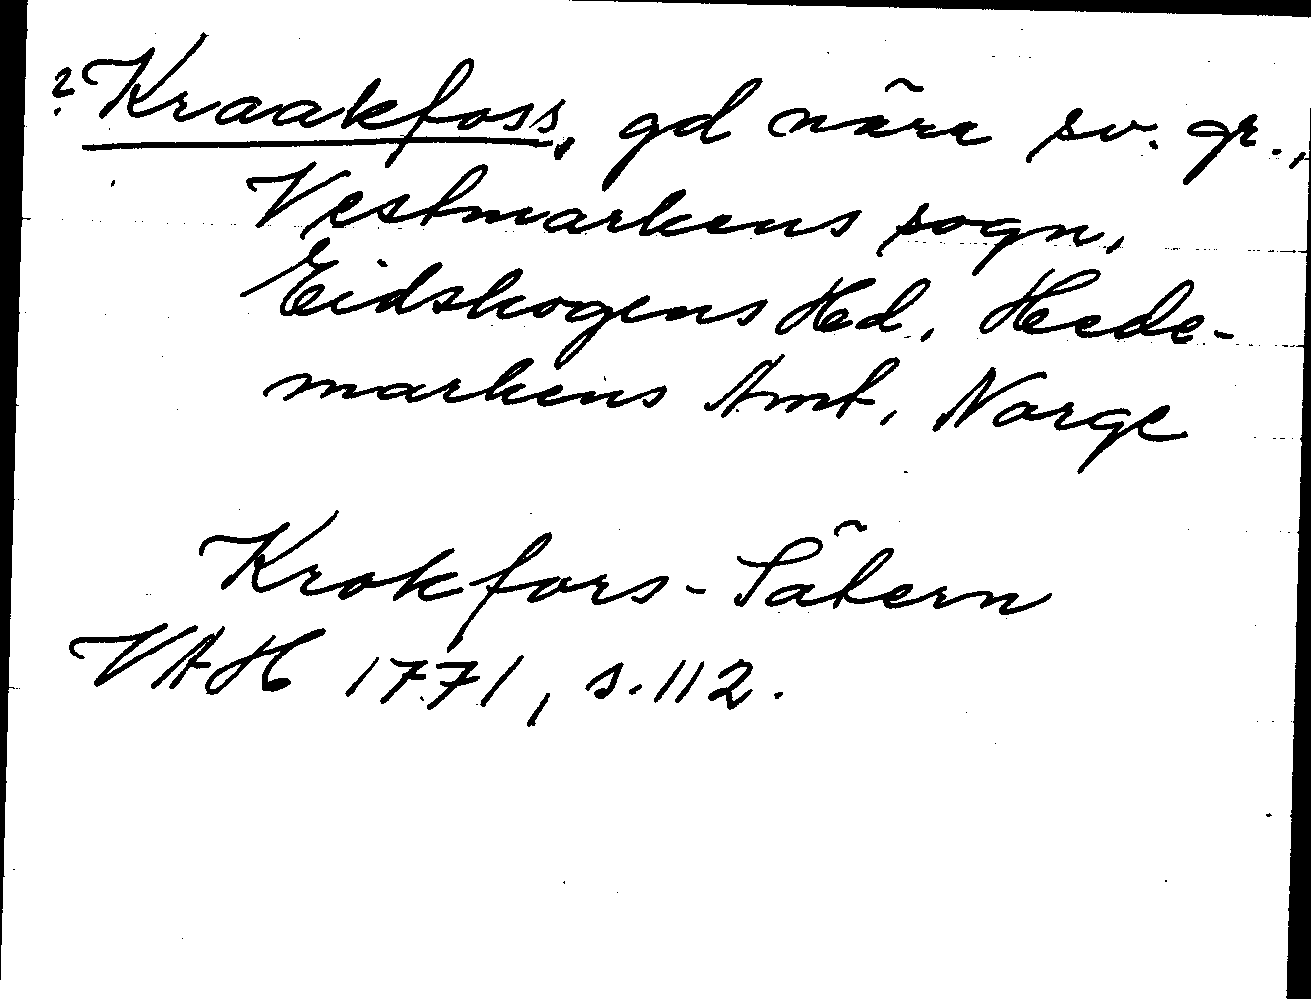 ? Kraakfoss, gd nära sv. gr.,
Vestmarkens sogn,
Eidskogens Hd, Hede-
markens Amt, Norge
Krokfors-Sätern
VAH 1771, s. 112.